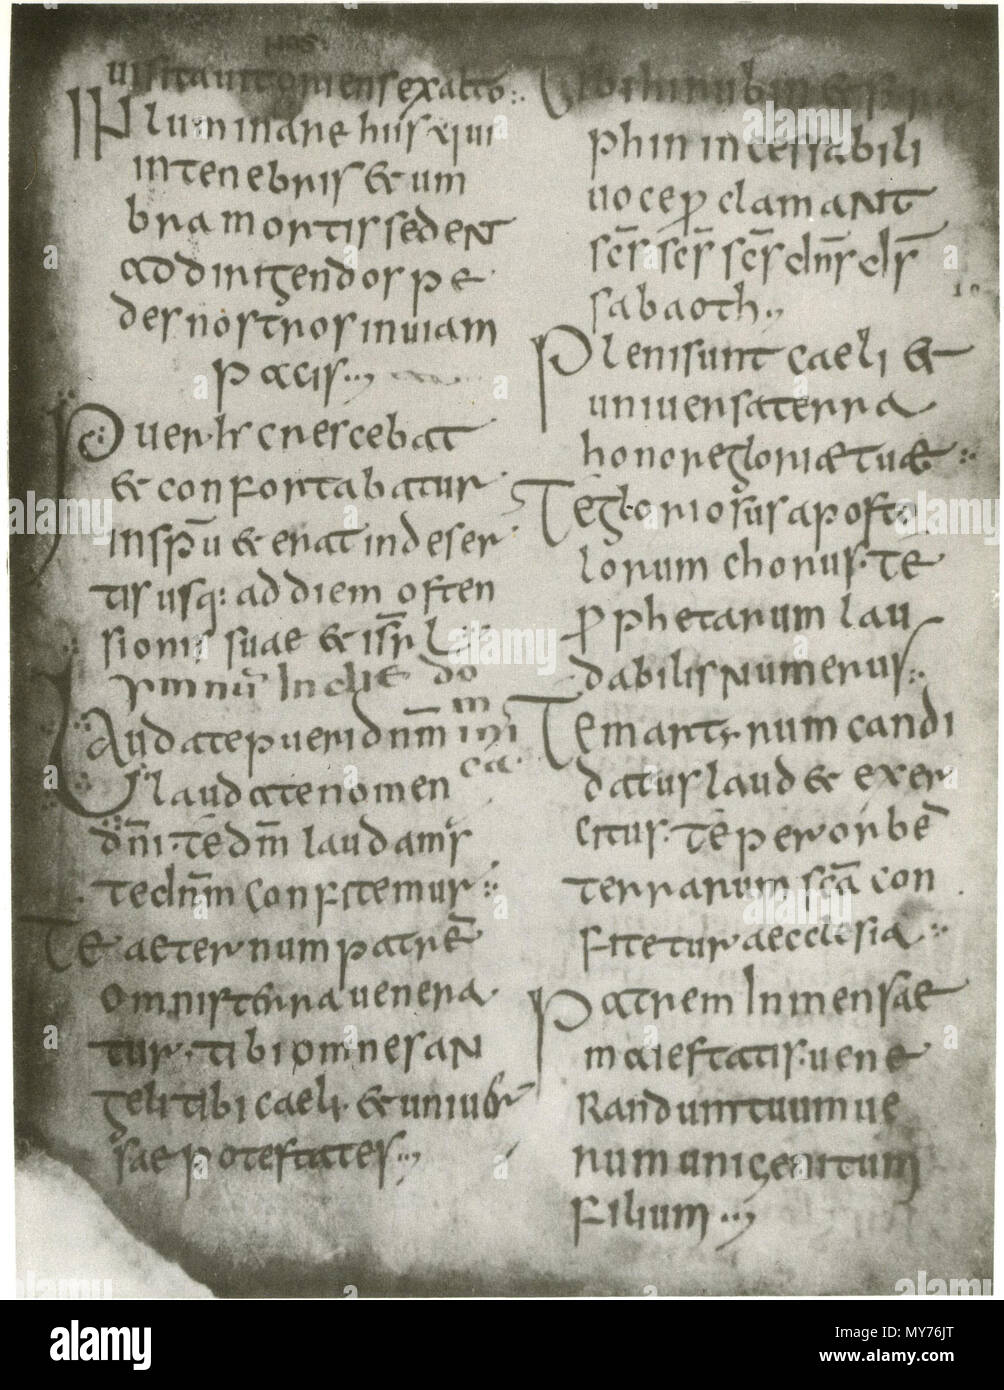 nos
uisitauit oriens exalto
Inluminare hiis qui
in tenebris & um
bra mortis sedent
ad dirigendos pe
des nostros in uiam
pacis
Puer hr crescebat
& confortabatur
in spū & erat in deser
tis usq: ad diem osten
sionis suae & isrl
Laudate pueri dnm
laudate nomen
dni· te dm laudams
te dnm confitemur
Te aeternum patrem
omnis terra uenera
tur· tibi omnes an
geli tibi caeli & uniuer
sae potestates
Tibi hirubin & sera
phin incessabili
uoce proclamant
scs scs scs dns ds
sabaoth
Pleni sunt caeli &
uniuersa terra
honore gloriae tuae
Te gloriosus aposto
lorum chorus· te
prophetarum lau
dabilis numerus
Te martyrum candi
datus laudet exer
citus· te per orbe
terrarum scā con
fitetur aecclesia
Patrem Inmensae
maiestatis· uene
Randum tuum ue
rum unigenitum
filium
alamy
Image ID: MY76JT
www.alamy.com